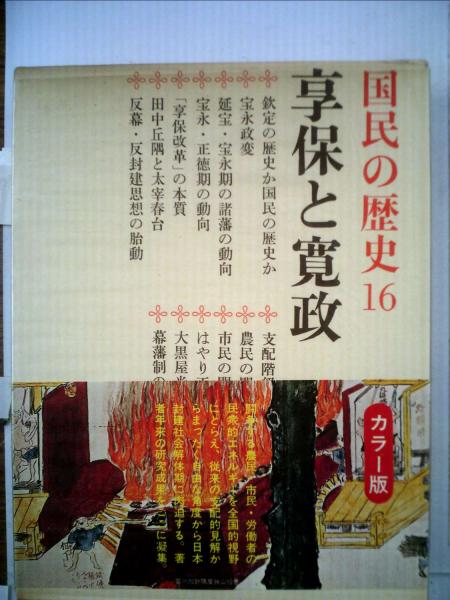 国民の歴史16
享保と寛政
欽定の歴史か国民の歴史か
宝永政変
延宝・宝永期の諸藩の動向
宝永・正徳期の動向
「享保改革」の本質
田中丘隅と太宰春台
反幕・反封建思想の胎動
支配階
農民の
市民の
はやり
大黒屋
幕藩制の
カラー版
闘争する農民・市民・労働者の
民衆的エネルギーを全国的視野
にとらえ、従来の支配的見解か
らまったく自由な角度から日本
封建社会解体期に肉迫する。著
者年来の研究成果をここに凝集。